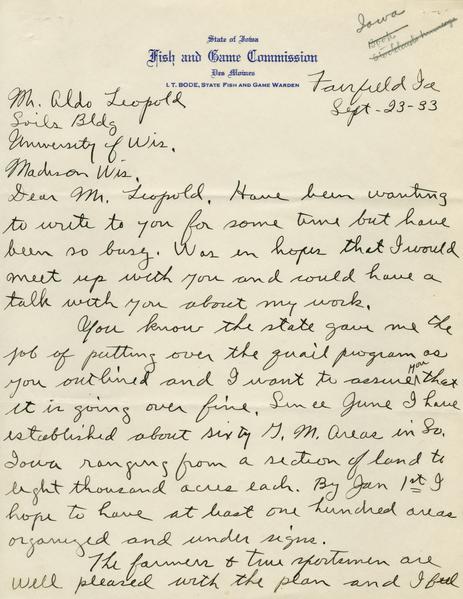 State of Iowa
Fish and Game Commission
Des Moines
I. T. BODE, STATE FISH AND GAME WARDEN
Iowa
Fairfield Ia
Sept-23-33
Mr. Aldo Leopold
Soils Bldg
University of Wis.
Madison Wis.
Dear Mr. Leopold. Have been wanting
to write to you for some time but have
been so busy. Was in hopes that I would
meet up with you and could have a
talk with you about my work.
You know the state gave me the
job of putting over the quail program as
you outlined and I want to assure you that
it is going over fine. Since June I have
established about sixty G. M. Areas in So.
Iowa ranging from a section of land to
eight thousand acres each. By Jan 1st I
hope to have at least one hundred areas
organized and under signs.
The farmers & true sportsmen are
well pleased with the plan and I feel